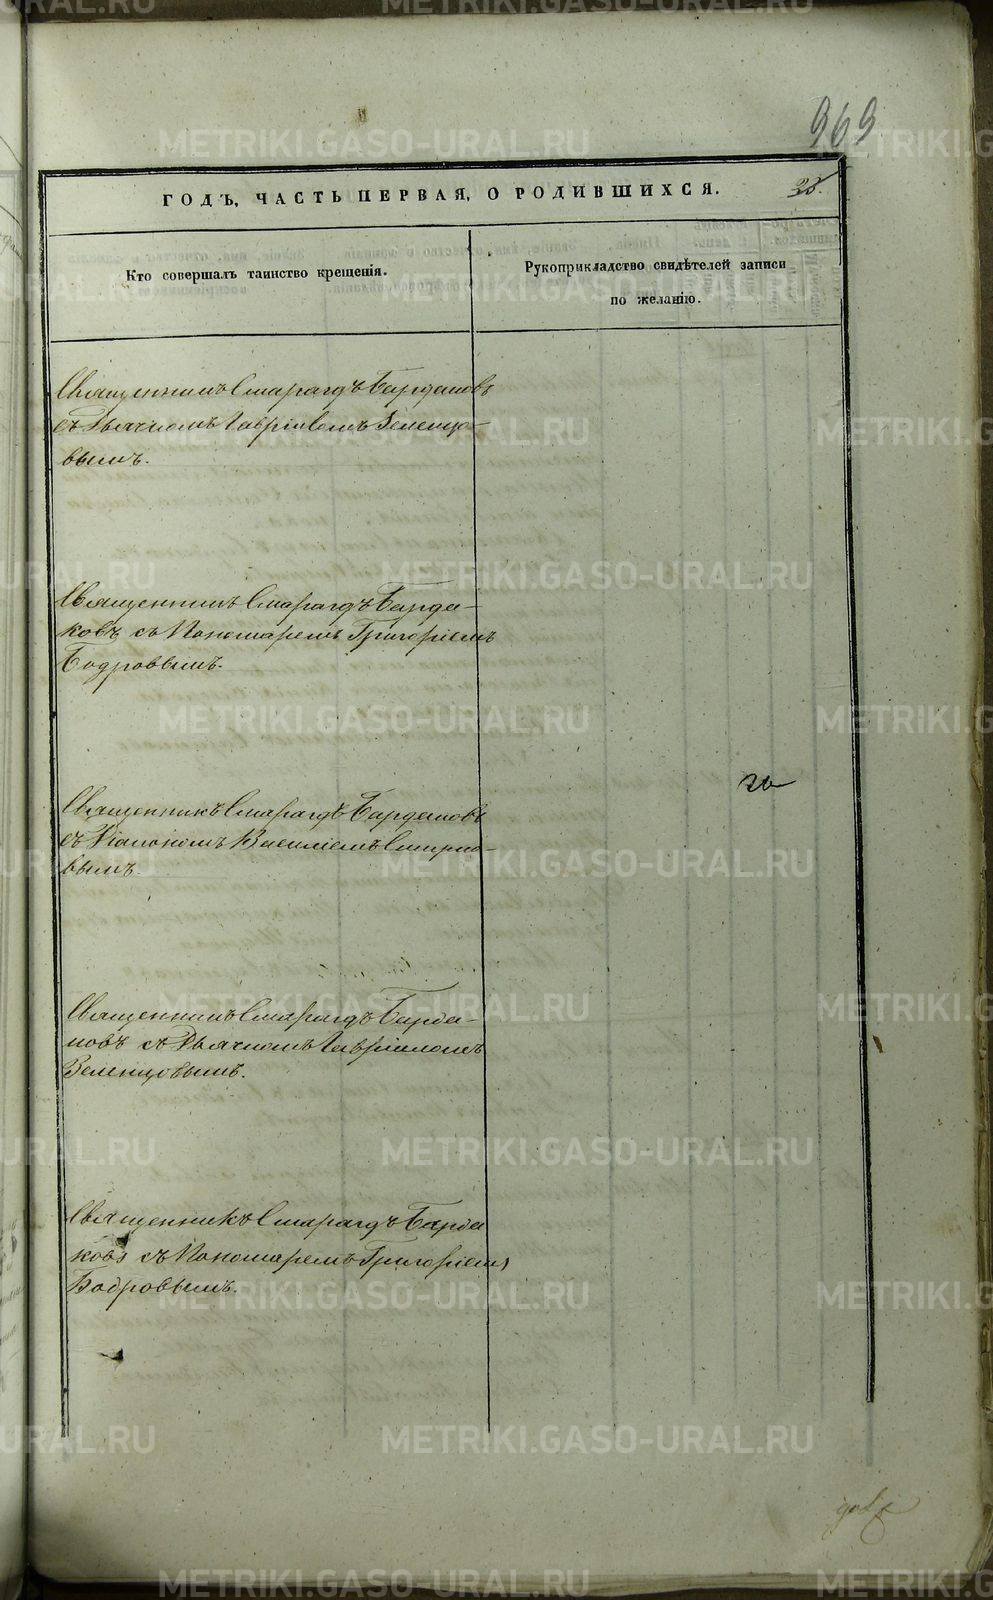 969
ГОДЪ, ЧАСТЬ ПЕРВАЯ, О РОДИВШИХСЯ.
Кто совершалъ таинство крещенія.
Рукоприкладство свидѣтелей записи
по желанію.
Священникъ Смарагдъ Бардаковъ
съ Дьячкомъ Гавріиломъ Зеленцо-
вымъ.
Священникъ Смарагдъ Барда-
ковъ съ Пономаремъ Григоріемъ
Бодровымъ.
Священникъ Смарагдъ Бардаковъ
съ Діакономъ Василіемъ Смирно-
вымъ.
Священникъ Смарагдъ Барда-
ковъ съ Дьячкомъ Гавріиломъ
Зеленцовымъ.
Священникъ Смарагдъ Барда
ковъ съ Пономаремъ Григоріемъ
Бодровымъ.
METRIKI.GASO-URAL.RU